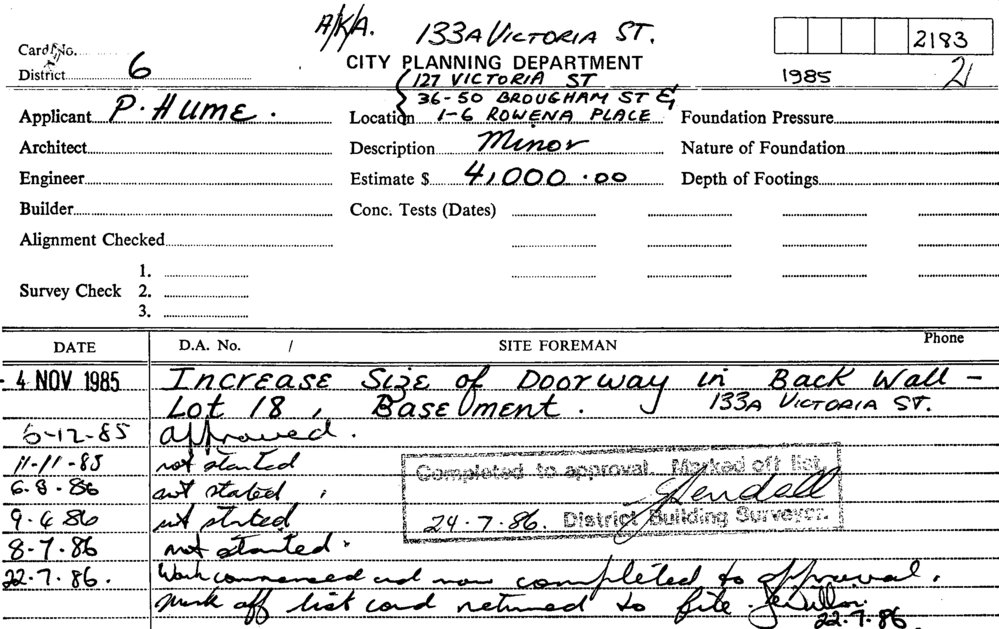 A/K/A. 133A VICTORIA ST.
2183
Card No.
District 6
CITY PLANNING DEPARTMENT
1985 21
127 VICTORIA ST
36-50 BROUGHAM ST &
Applicant P. HUME.
Location 1-6 ROWENA PLACE
Foundation Pressure
Architect
Description Minor
Nature of Foundation
Engineer
Estimate $ 4,000.00
Depth of Footings
Builder
Conc. Tests (Dates)
Alignment Checked
Survey Check
1.
2.
3.
DATE D.A. No. / SITE FOREMAN Phone
- 4 NOV 1985 Increase Size of Doorway in Back Wall -
Lot 18, Basement. 133A VICTORIA ST.
-12-85 approved.
11-11-85 not started
6.8.86 not started
9.4.86 not started
8-7-86 not started.
22.7.86. Work commenced and now completed to approval.
Mark off list card returned to file.
22.7.86.
Completed to approval. Marked off list.
24.7.86. District Building Surveyor.